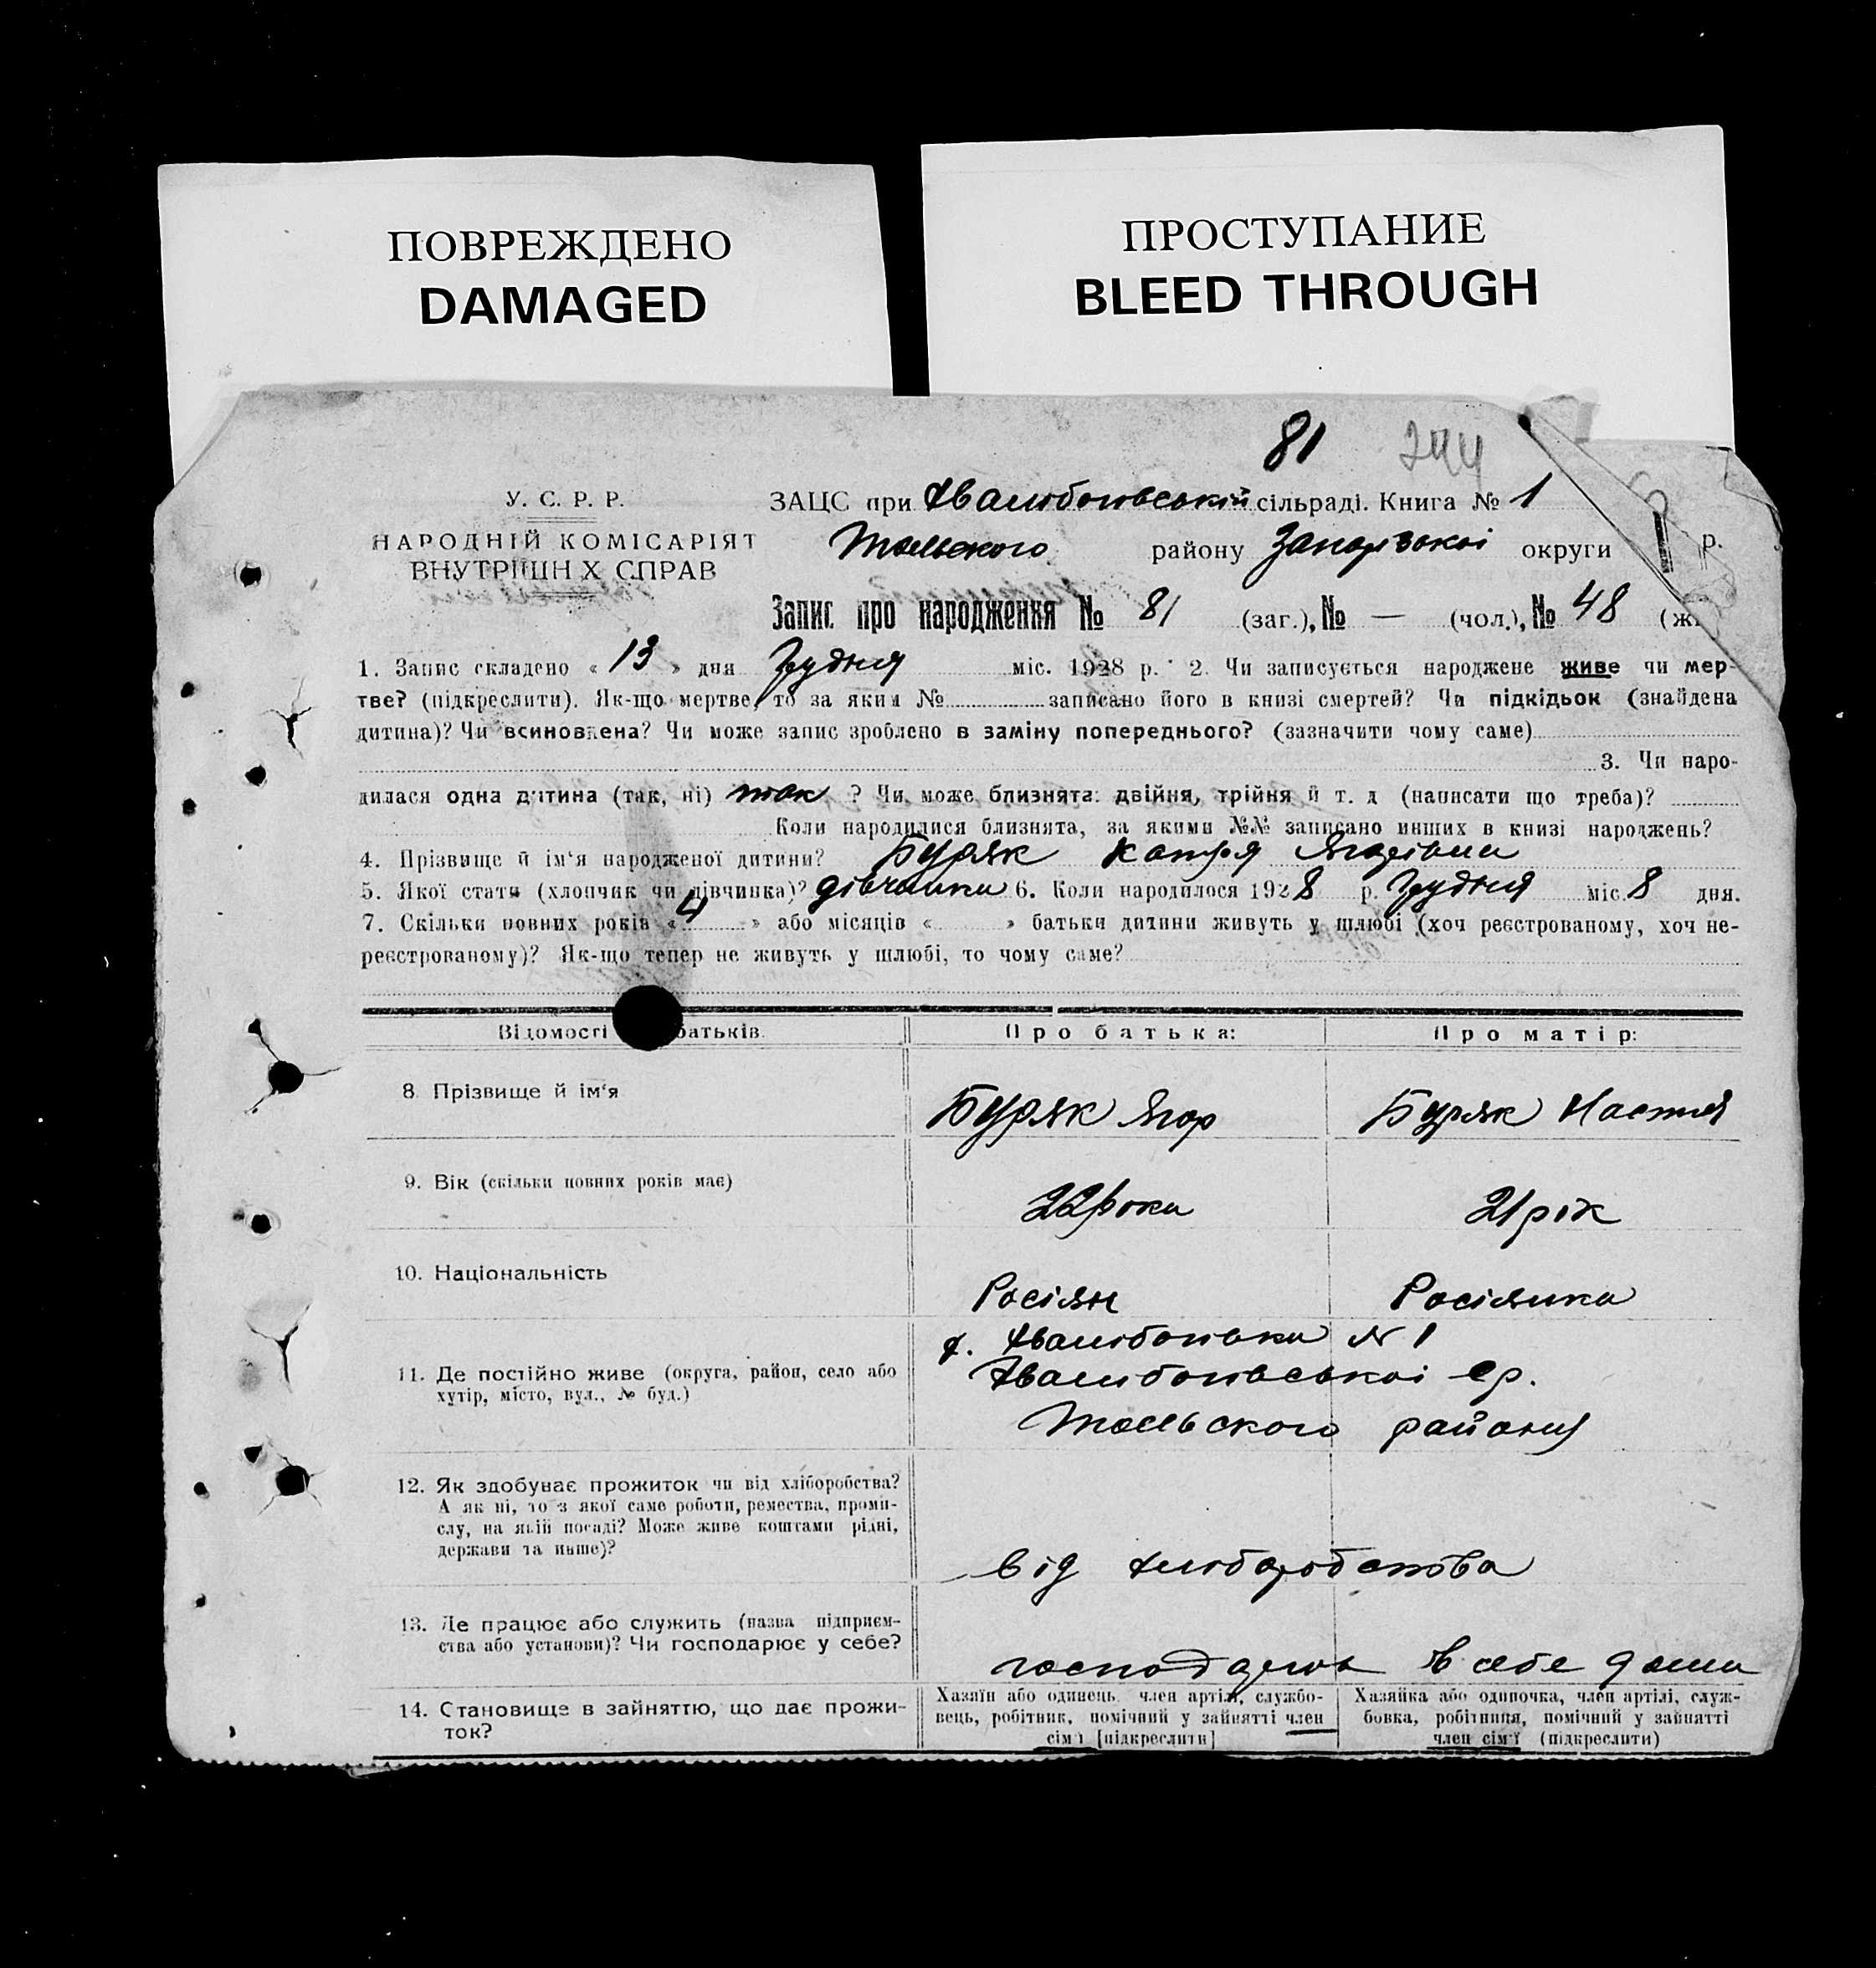 ПОВРЕЖДЕНО
DAMAGED
ПРОСТУПАНИЕ
BLEED THROUGH
81 244
У. С. Р. Р.
НАРОДНІЙ КОМІСАРІЯТ
ВНУТРІШН Х СПРАВ
ЗАЦС при сільраді. Книга № 1
району округи р.
Запис про народження № 81 (заг.), № — (чол.), № 48 (ж
1. Запис складено « 13 » дня Грудня міс. 1928 р. 2. Чи записується народжене живе чи мер-
тве? (підкреслити). Як-що мертве, то за яким № записано його в книзі смертей? Чи підкідьок (знайдена
дитина)? Чи всиновлена? Чи може запис зроблено в заміну попереднього? (зазначити чому саме)
3. Чи наро-
дилася одна дитина (так, ні) так ? Чи може близнята: двійня, трійня й т. д (написати що треба)?
Коли народилися близнята, за якими №№ записано инших в книзі народжень?
4. Прізвище й ім'я народженої дитини? Буряк Катря
5. Якої стати (хлопчик чи дівчинка)? дівчинка 6. Коли народилося 1928 р. Грудня міс. 8 дня.
7. Скільки повних років « 4 » або місяців « » батьки дитини живуть у шлюбі (хоч реєстрованому, хоч не-
реєстрованому)? Як-що тепер не живуть у шлюбі, то чому саме?
Відомості батьків. Про батька: Про матір:
8. Прізвище й ім'я Буряк Ягор Буряк Настя
9. Вік (скільки повних років має) 22 роки 21 рік
10. Національність Росіян Росіянка
№ 1
11. Де постійно живе (округа, район, село або
хутір, місто, вул., № буд.)
ср.
району
12. Як здобуває прожиток чи від хліборобства?
А як ні, то з якої саме роботи, ремества, проми-
слу, на якій посаді? Може живе коштами рідні,
держави та инше)?
від хліборобства
13. Де працює або служить (назва підприєм-
ства або установи)? Чи господарює у себе?
в себе дома
14. Становище в зайняттю, що дає прожи-
ток?
Хазяїн або одинець, член артілі, службо-
вець, робітник, помічний у зайнятті член
сім'ї [підкреслити]
Хазяйка або одиночка, член артілі, служ-
бовка, робітниця, помічний у зайнятті
член сім'ї (підкреслити)